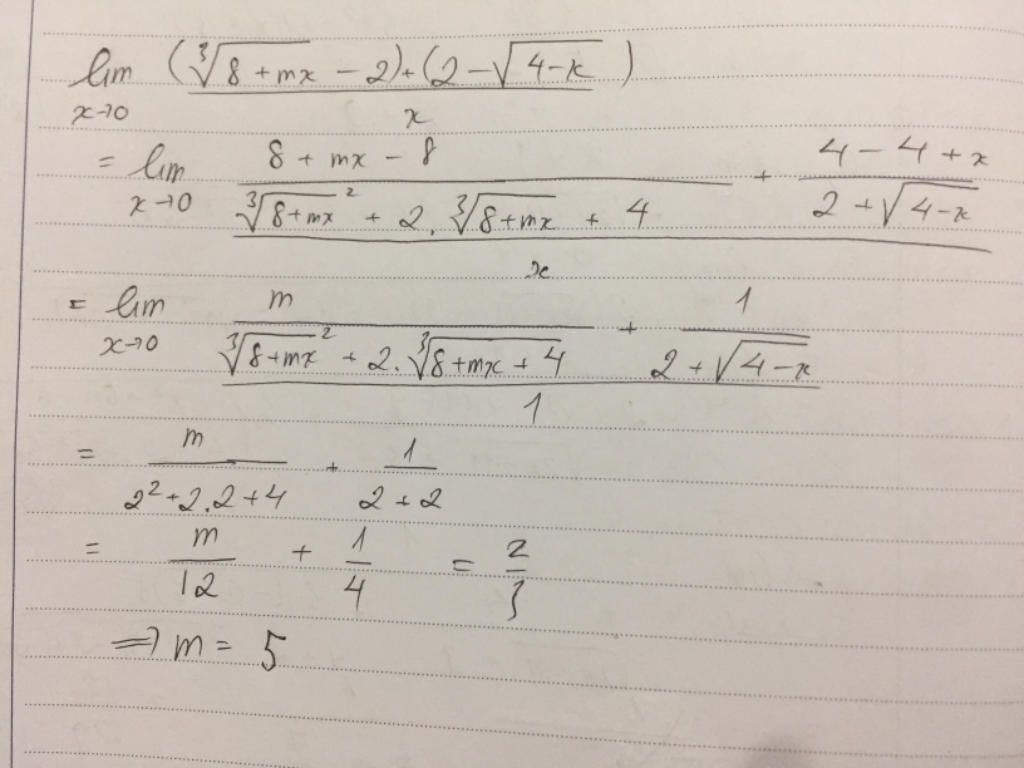 lim x→0 ((∛(8 + mx) − 2) + (2 − √(4 − x))) / x
= lim x→0 ((8 + mx − 8) / (∛(8 + mx)² + 2.∛(8 + mx) + 4) + (4 − 4 + x) / (2 + √(4 − x))) / x
= lim x→0 (m / (∛(8 + mx)² + 2.∛(8 + mx + 4)) + 1 / (2 + √(4 − x))) / 1
= m / (2² + 2.2 + 4) + 1 / (2 + 2)
= m / 12 + 1 / 4 = 2 / 3
⇒ m = 5